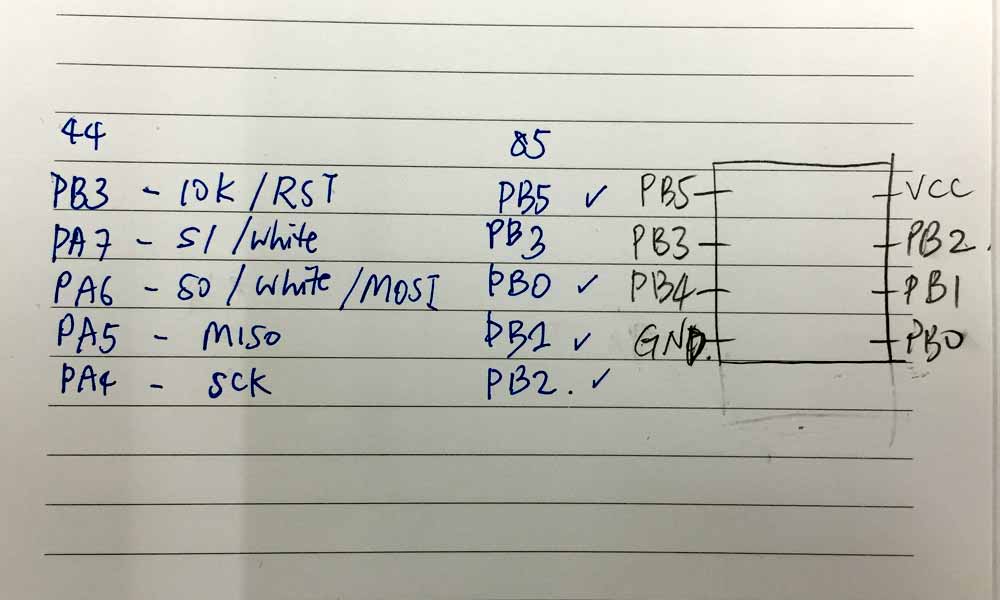 44 85
PB3 - 10K/RST PB5 ✓ PB5 VCC
PA7 - S1/white PB3 PB3 PB2.
PA6 - S0/white/MOSI PB0 ✓ PB4 PB1
PA5 - MISO PB1 ✓ GND. PB0
PA4 - SCK PB2. ✓